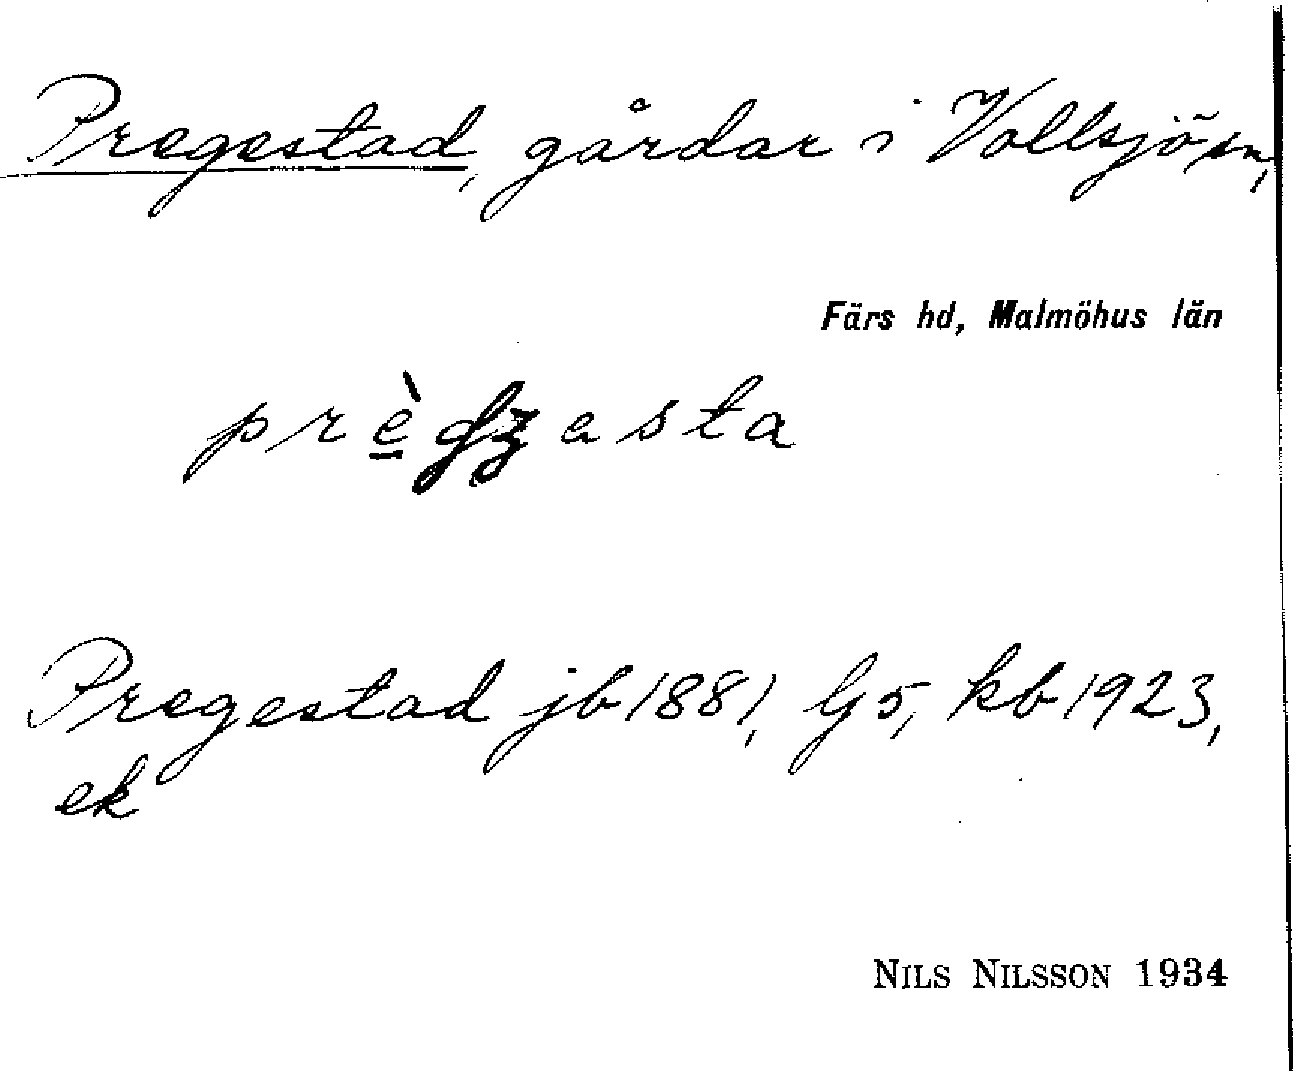 Pregestad, gårdar i Vollsjö sn,
Färs hd, Malmöhus län
Pregestad jb 1881, Gj 5, kb 1923,
ek
NILS NILSSON 1934